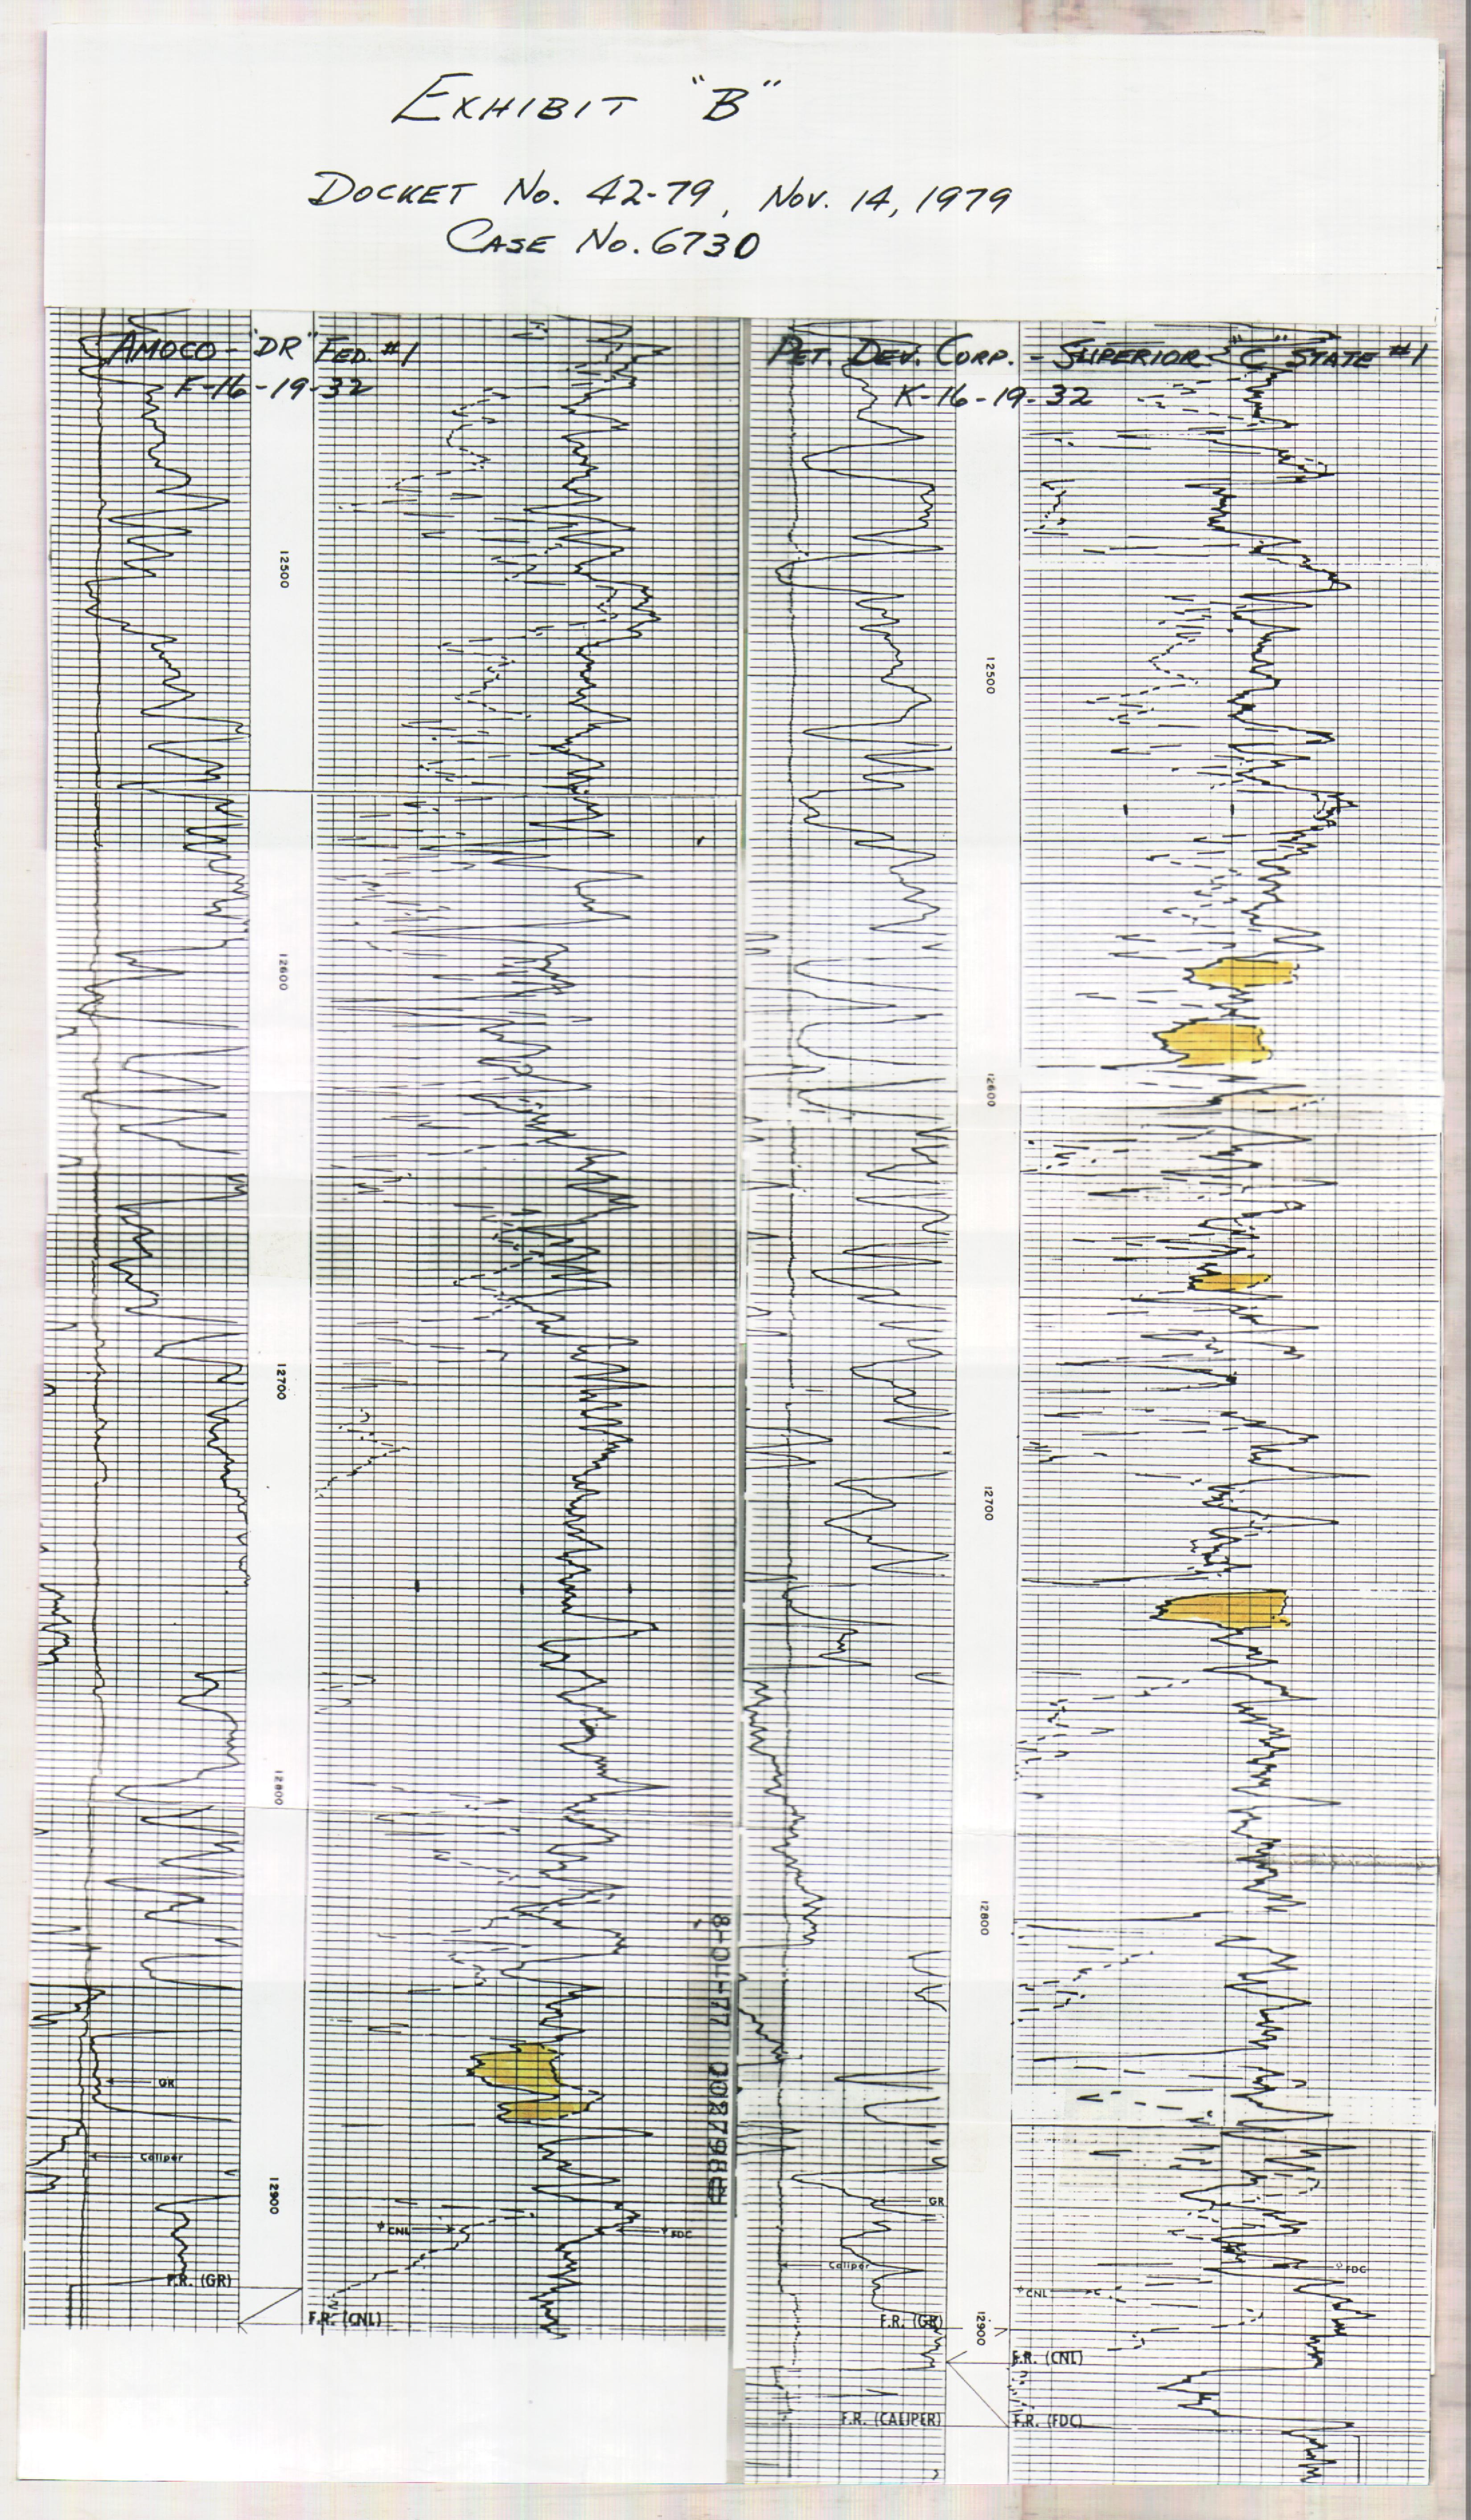 EXHIBIT "B"
DOCKET NO. 42-79, NOV. 14, 1979
CASE NO. 6730
AMOCO - "DR" FED. #1
F-16-19-32
12500
12600
12700
12800
GR
Caliper
12900
CNL
FDC
F.R. (GR)
F.R. (CNL)
PET. DEV. CORP. - SUPERIOR "C" STATE #1
K-16-19-32
12500
12600
12700
12800
GR
Caliper
FDC
CNL
F.R. (GR)
12900
F.R. (CNL)
F.R. (CALIPER)
F.R. (FDC)